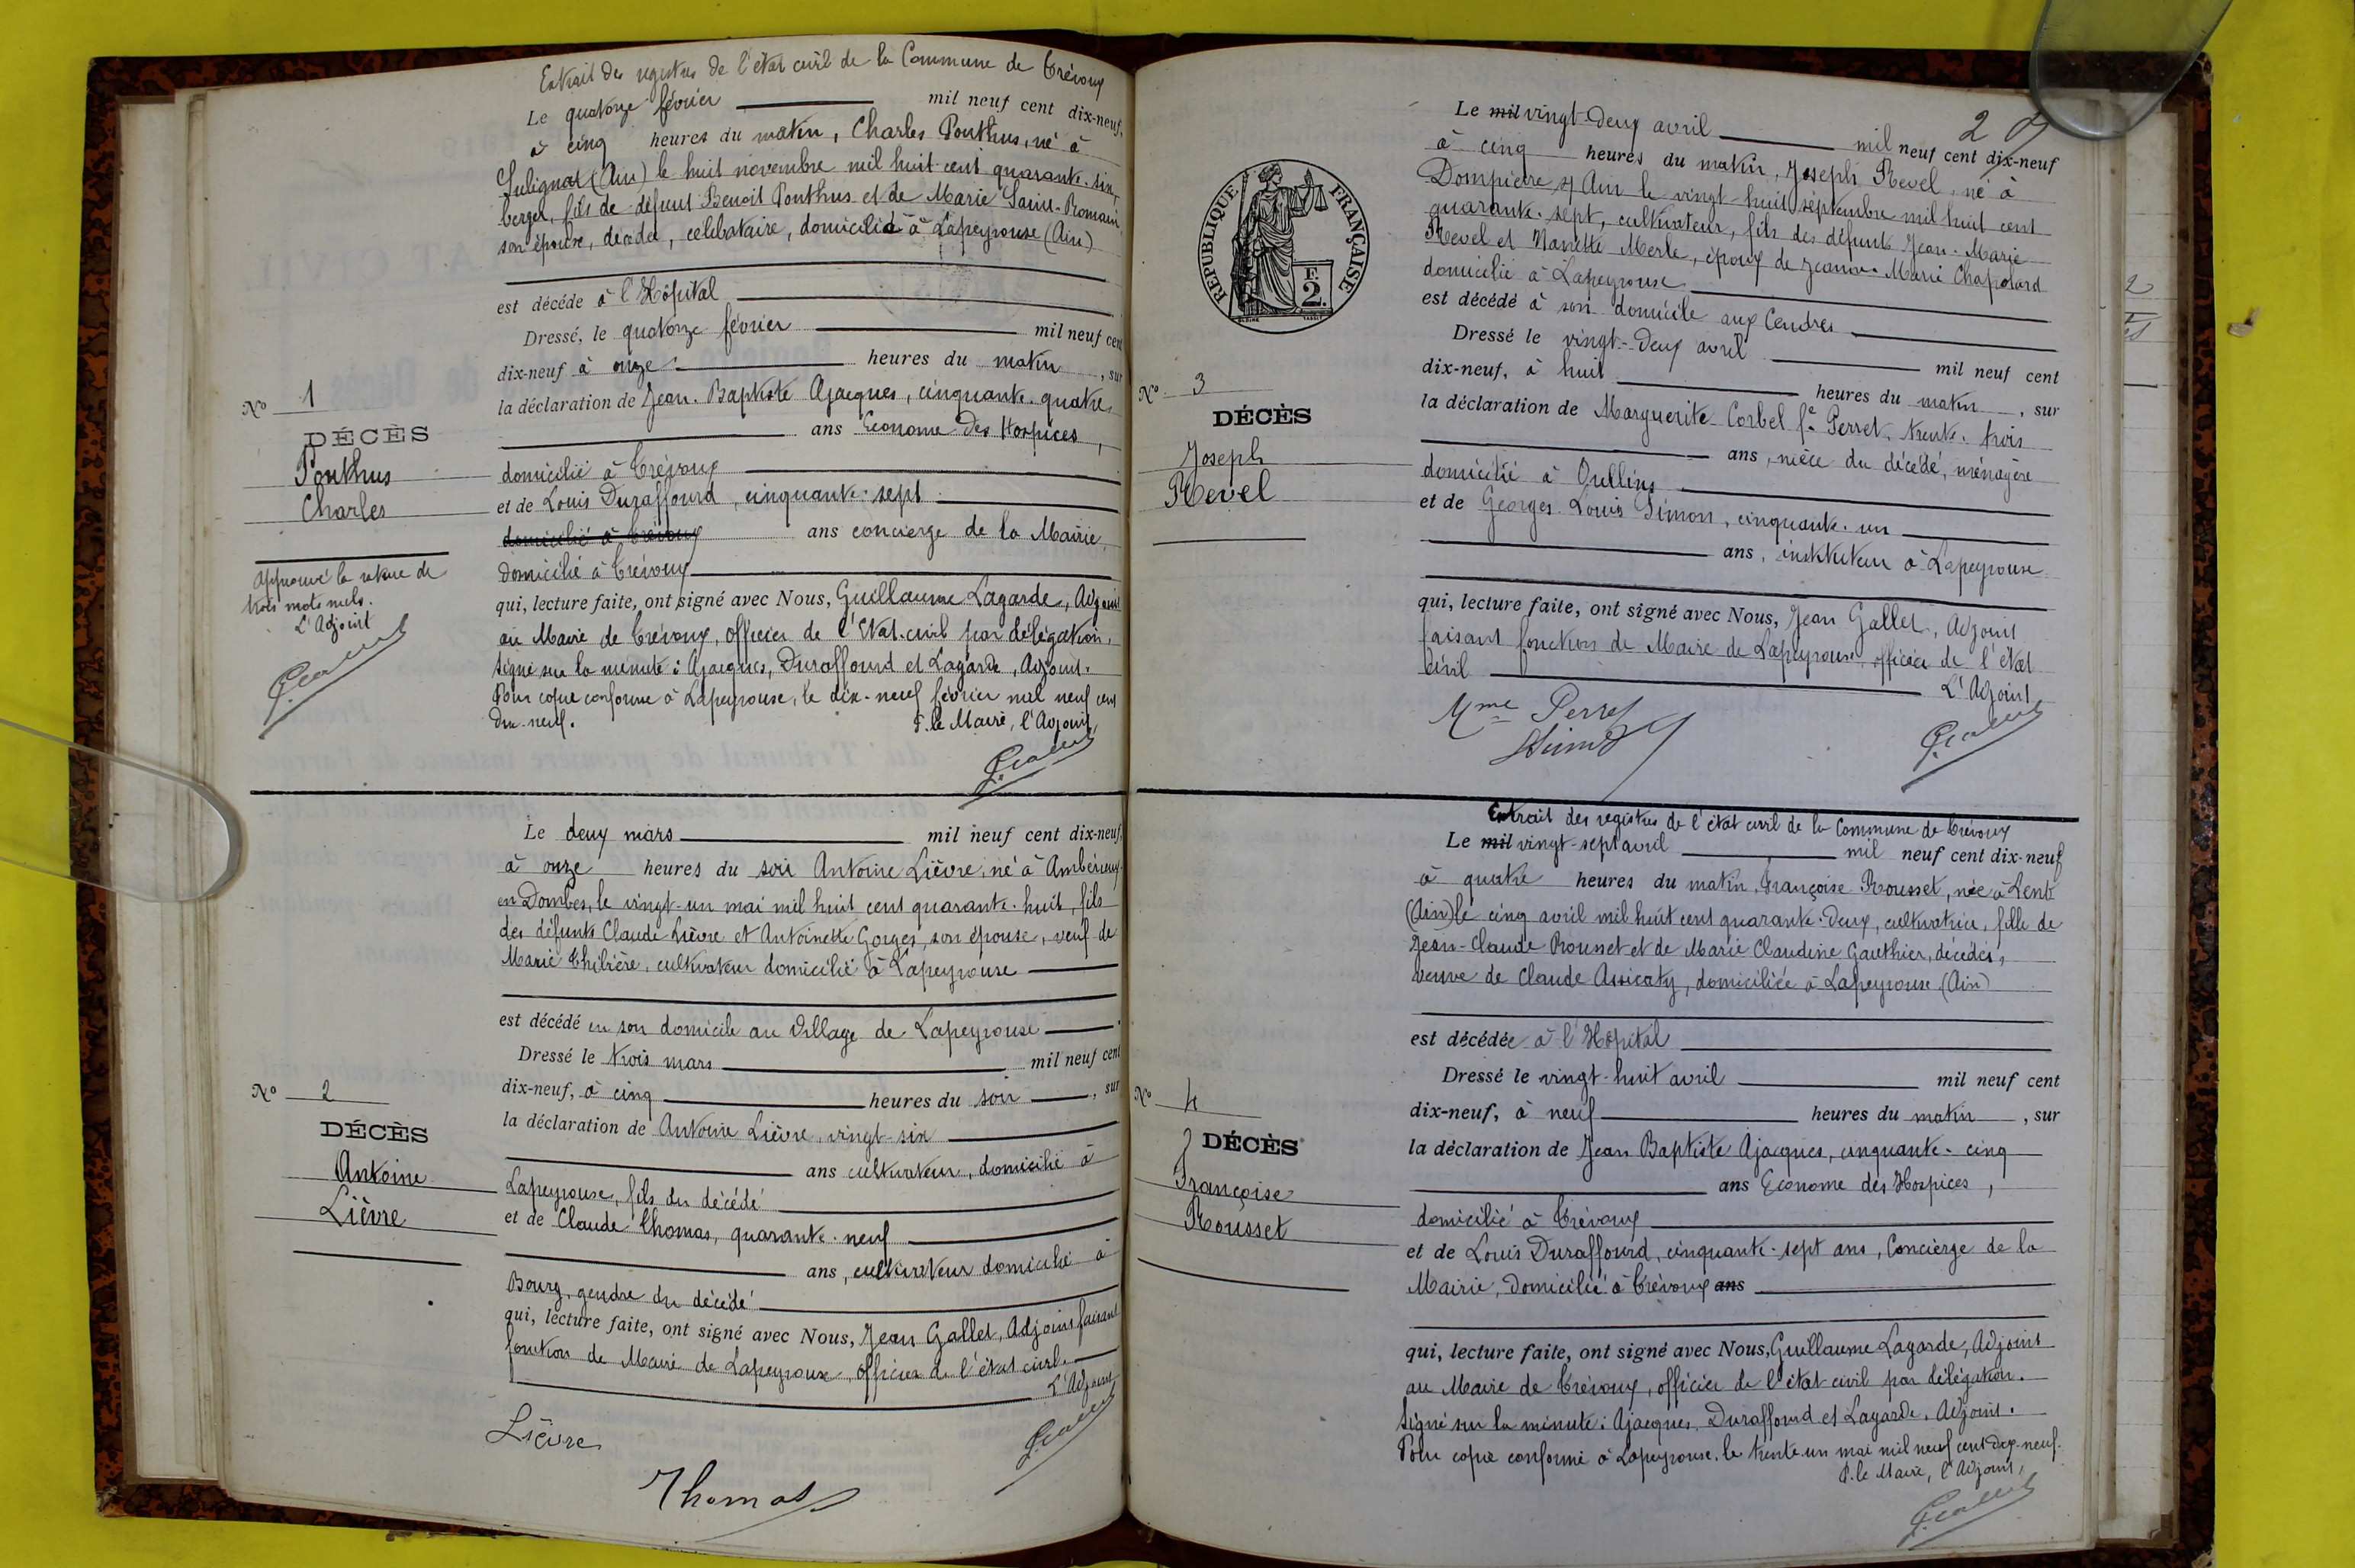 Extrait des registres de l'état civil de la Commune de Trévoux
Le quatorze février mil neuf cent dix-neuf,
à cinq heures du matin, Charles Ponthus, né à
Sulignat (Ain) le huit novembre mil huit cent quarante-six,
berger, fils de défunt Benoit Ponthus et de Marie Saint-Romain
son épouse, décédée, célibataire, domicilié à Lapeyrouse (Ain)
est décédé à l'Hôpital
Dressé, le quatorze février mil neuf cent
dix-neuf à onze heures du matin, sur
la déclaration de Jean-Baptiste Ajacques, cinquante-quatre
ans Econome des Hospices,
domicilié à Trévoux
et de Louis Duraffourd, cinquante-sept
domicilié à Trévoux ans concierge de la Mairie,
domicilié à Trévoux
qui, lecture faite, ont signé avec Nous, Guillaume Lagarde, Adjoint
au Maire de Trévoux, officier de l'Etat-civil par délégation.
Signé sur la minute : Ajacques, Duraffourd et Lagarde, Adjoint.
Pour copie conforme à Lapeyrouse, le dix-neuf février mil neuf cent
dix-neuf. P. le Maire, l'Adjoint,
J. Gallet
N° 1
DÉCÈS
Ponthus
Charles
Approuvé la rature de
trois mots nuls.
L'Adjoint
J. Gallet
Le deux mars mil neuf cent dix-neuf,
à onze heures du soir Antoine Lièvre, né à Ambérieux
en Dombes, le vingt-un mai mil huit cent quarante-huit, fils
des défunts Claude Lièvre et Antoinette Gorges, son épouse, veuf de
Marie Thibière, cultivateur domicilié à Lapeyrouse
est décédé en son domicile au Village de Lapeyrouse
Dressé le trois mars mil neuf cent
dix-neuf, à cinq heures du soir, sur
la déclaration de Antoine Lièvre, vingt-six
ans cultivateur, domicilié à
Lapeyrouse, fils du décédé
et de Claude Thomas, quarante-neuf
ans, cultivateur domicilié à
Bourg, gendre du décédé
qui, lecture faite, ont signé avec Nous, Jean Gallet, Adjoint faisant
fonction de Maire de Lapeyrouse, officier de l'état civil.
L'Adjoint
Lièvre
J. Gallet
Thomas
N° 2
DÉCÈS
Antoine
Lièvre
2
Le mil vingt-deux avril mil neuf cent dix-neuf
à cinq heures du matin, Joseph Revel, né à
Dompierre s/ Ain le vingt-huit septembre mil huit cent
quarante-sept, cultivateur, fils des défunts Jean-Marie
Revel et Nanette Merle, époux de Jeanne-Marie Chapolard
domicilié à Lapeyrouse
est décédé à son domicile aux Cendres
Dressé le vingt-deux avril mil neuf cent
dix-neuf, à huit heures du matin, sur
la déclaration de Marguerite Corbel fe Perret, trente-trois
ans, nièce du décédé, ménagère
domicilié à Oullins
et de Georges Louis Simon, cinquante-un
ans, instituteur à Lapeyrouse
qui, lecture faite, ont signé avec Nous, Jean Gallet, Adjoint
faisant fonction de Maire de Lapeyrouse, officier de l'état
civil
L'Adjoint
Mme Perret
Simon
J. Gallet
RÉPUBLIQUE FRANÇAISE
F.
2.
N° 3
DÉCÈS
Joseph
Revel
Extrait des registres de l'état civil de la Commune de Trévoux
Le mil vingt-sept avril mil neuf cent dix-neuf
à quatre heures du matin, Françoise Rousset, née à Lent
(Ain) le cinq avril mil huit cent quarante-deux, cultivatrice, fille de
Jean-Claude Rousset et de Marie Claudine Gauthier, décédés,
veuve de Claude Assicaty, domiciliée à Lapeyrouse (Ain)
est décédée à l'Hôpital
Dressé le vingt-huit avril mil neuf cent
dix-neuf, à neuf heures du matin, sur
la déclaration de Jean Baptiste Ajacques, cinquante-cinq
ans Econome des Hospices,
domicilié à Trévoux
et de Louis Duraffourd, cinquante-sept ans, Concierge de la
Mairie, domicilié à Trévoux ans
qui, lecture faite, ont signé avec Nous, Guillaume Lagarde, Adjoint
au Maire de Trévoux, officier de l'état civil par délégation.
Signé sur la minute : Ajacques, Duraffourd et Lagarde, Adjoint.
Pour copie conforme à Lapeyrouse, le trente-un mai mil neuf cent dix-neuf.
P. le Maire, l'Adjoint,
J. Gallet
N° 4
DÉCÈS
Françoise
Rousset